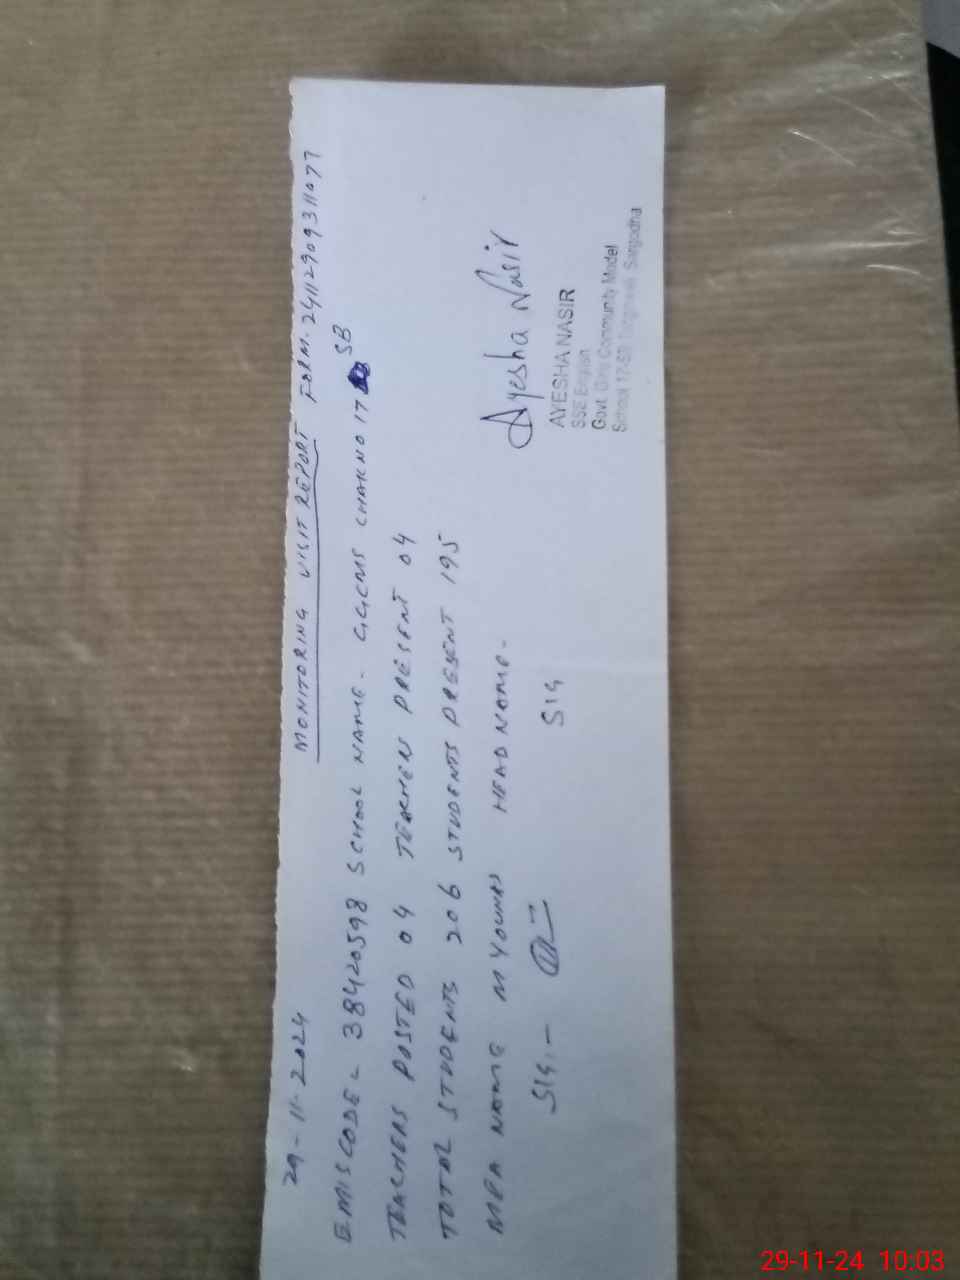 29-11-2024 MONITORING VISIT REPORT FORM. 2411290931077
EMIS CODE - 38420598 SCHOOL NAME - GGCMS CHAK NO 17 SB
TEACHERS POSTED 04 TEACHERS PRESENT 04
TOTAL STUDENTS 206 STUDENTS PRESENT 195
MEA NAME M YOUNAS HEAD NAME -
SIG. - SIG
Ayesha Nasir
AYESHA NASIR
SSE English
Govt. Girls Community Model
School 17-SB Sargodha
29-11-24 10:03